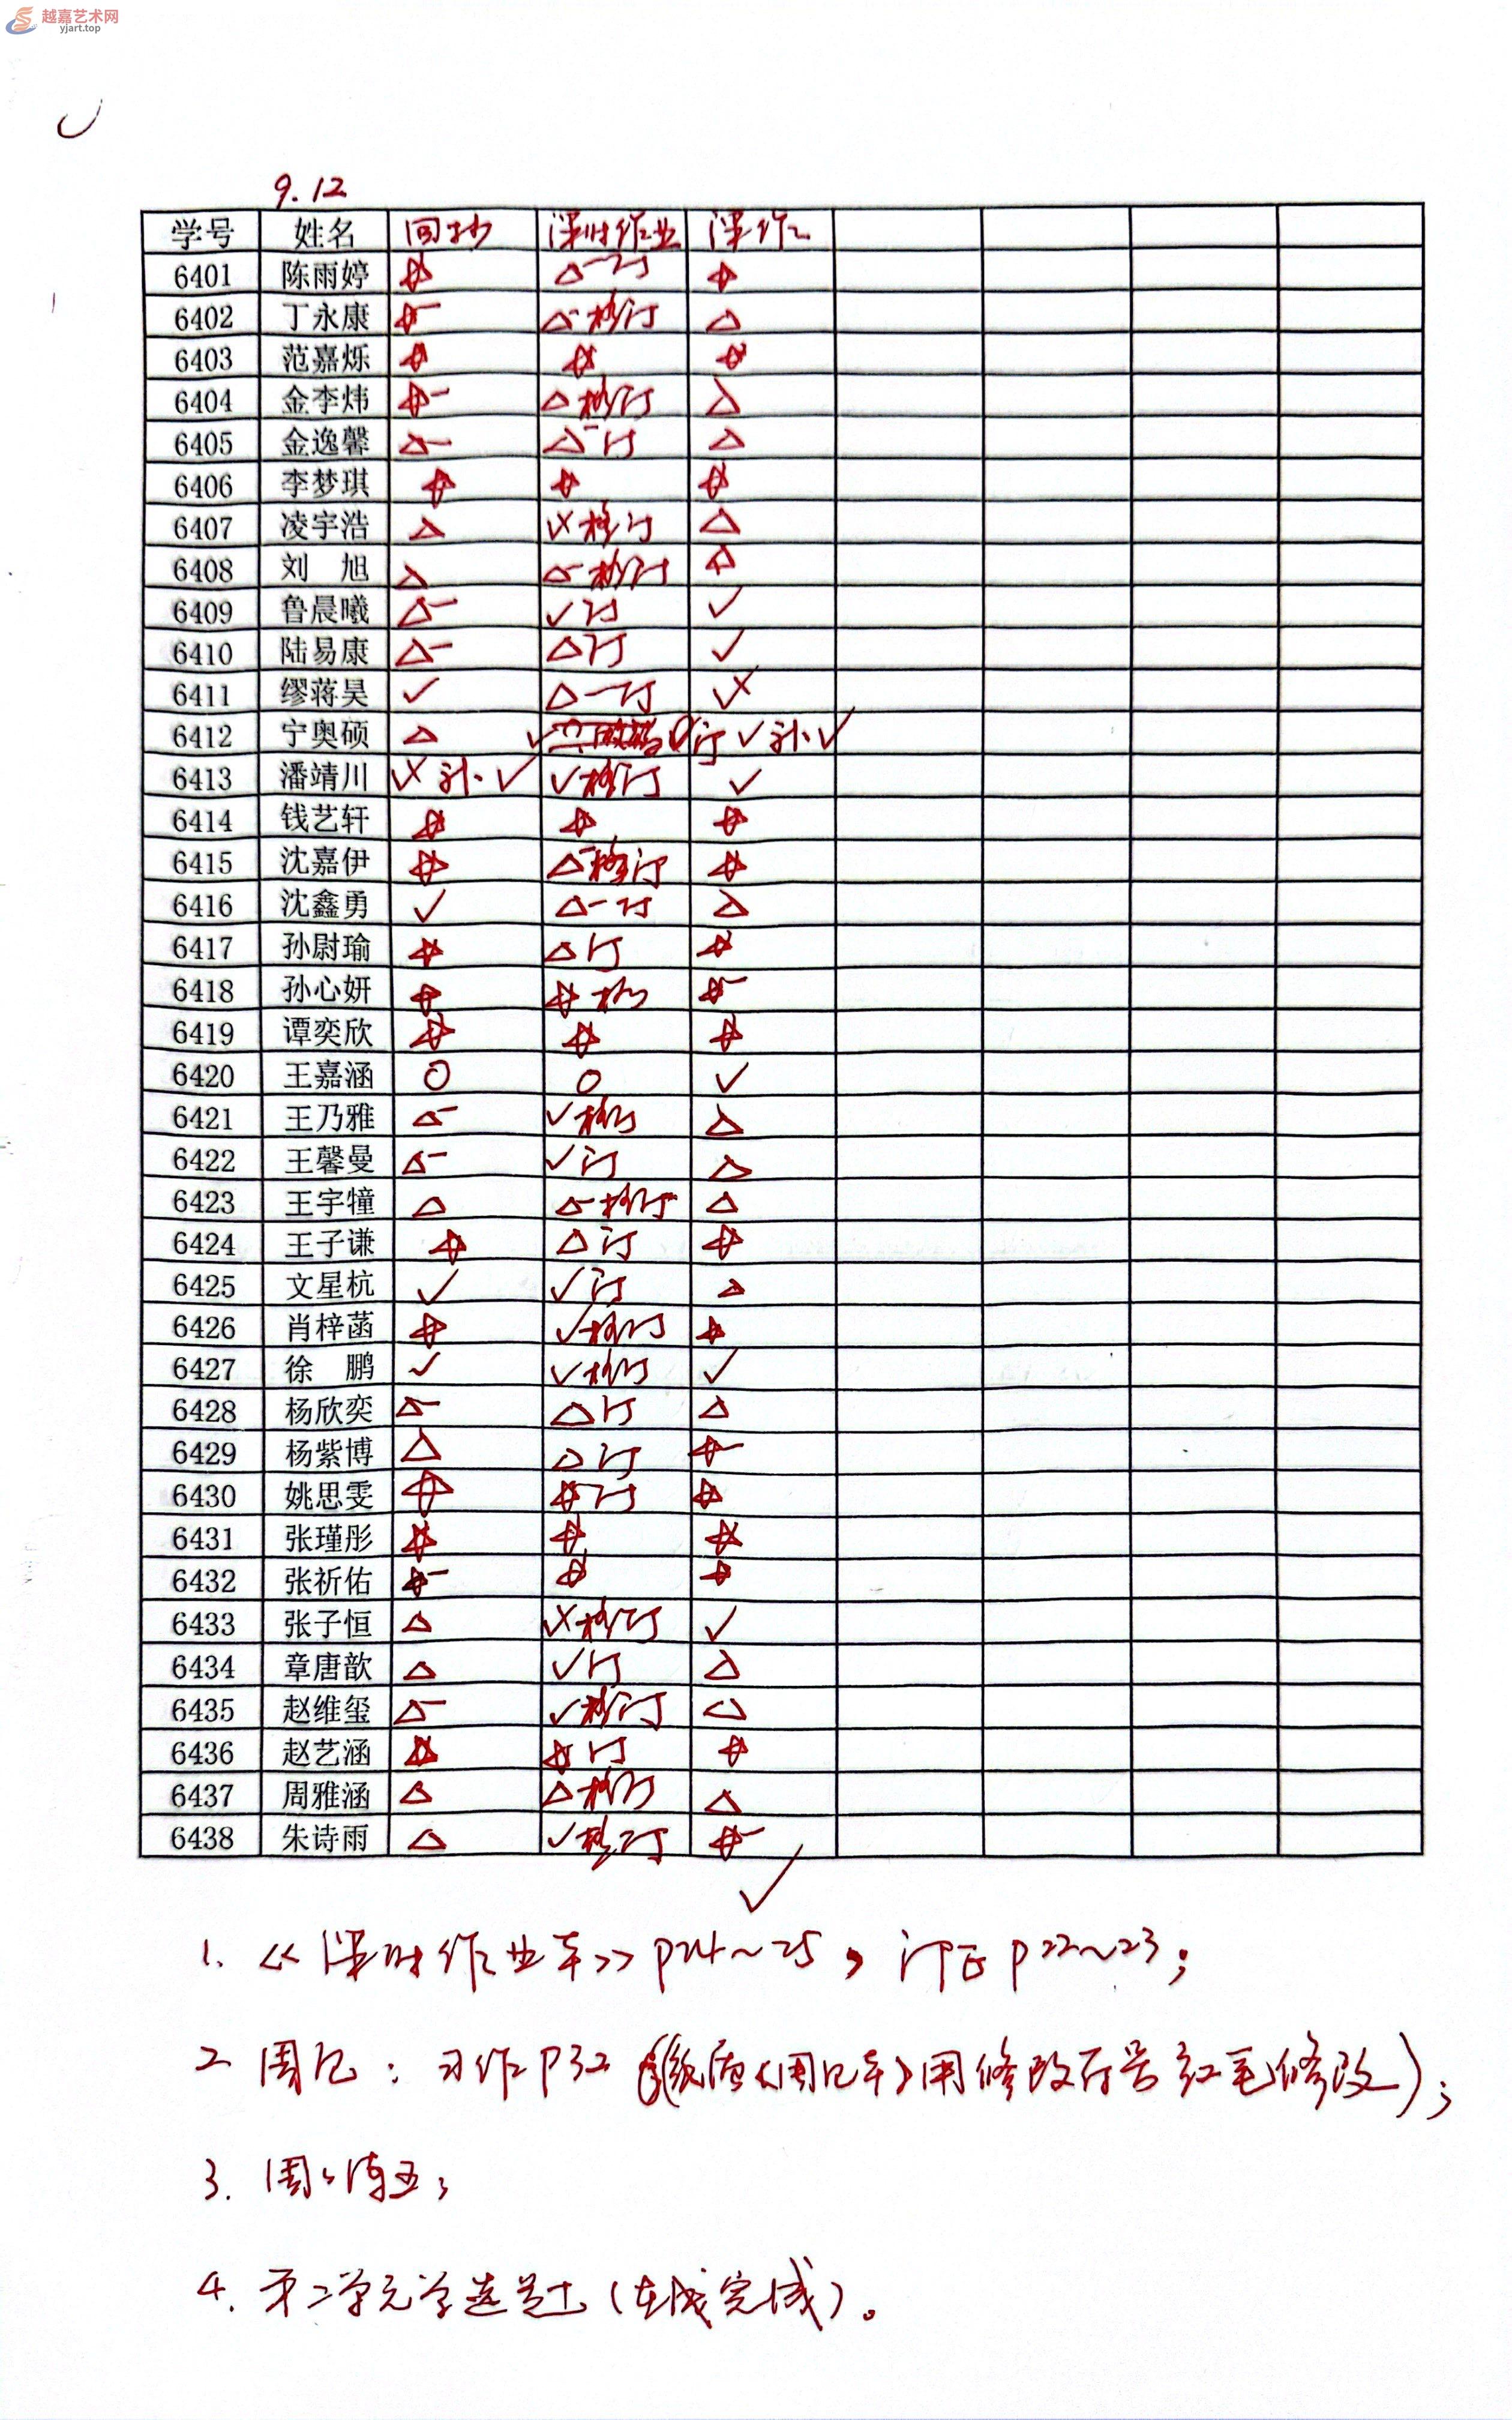 越嘉艺术网
yjart.top
9.12
学号 姓名 课时作业 课作
6401 陈雨婷 △-订
6402 丁永康 △-格订 △
6403 范嘉烁
6404 金李炜 △格订 △
6405 金逸馨 △- △-订 △
6406 李梦琪
6407 凌宇浩 △ 格订 △
6408 刘 旭 △ △-格订 △
6409 鲁晨曦 △- ✓订 ✓
6410 陆易康 △- △订 ✓
6411 缪蒋昊 ✓ △-订
6412 宁奥硕 △ ✓ 订 ✓补✓
6413 潘靖川 补✓ ✓格订 ✓
6414 钱艺轩
6415 沈嘉伊 △-格订
6416 沈鑫勇 ✓ △-订 △
6417 孙尉瑜 △订
6418 孙心妍 格
6419 谭奕欣
6420 王嘉涵 O O ✓
6421 王乃雅 △- ✓格订 △
6422 王馨曼 △- ✓订 △
6423 王宇犝 △ △-格订 △
6424 王子谦 △订
6425 文星杭 ✓ ✓订 △
6426 肖梓菡 ✓格订
6427 徐 鹏 ✓ ✓格订 ✓
6428 杨欣奕 △- △订 △
6429 杨紫博 △ △订
6430 姚思雯 订
6431 张瑾彤
6432 张祈佑
6433 张子恒 △ 格订 ✓
6434 章唐歆 △ ✓订 △
6435 赵维玺 △- ✓格订 △
6436 赵艺涵 订
6437 周雅涵 △ △格订 △
6438 朱诗雨 △ ✓格订
✓
1. 《课时作业本》P24~25，订正P22~23；
2. 周记：习作P32（纸质《周记本》用修改符号红笔修改）；
3. 周
4. 第二单元学 （在线完成）。